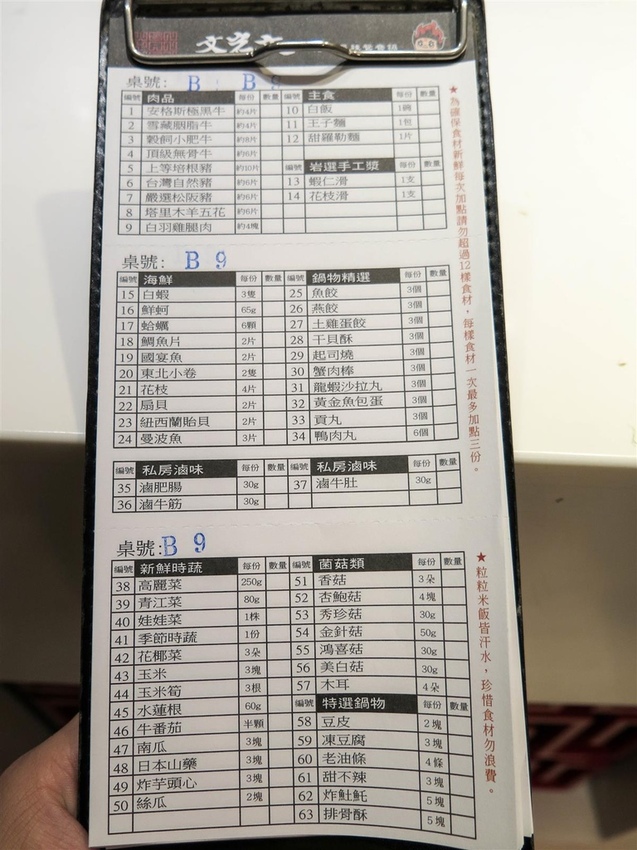 桌號: B B 9
編號 肉品 每份 數量 編號 主食 每份 數量
1 安格斯極黑牛 約4片 10 白飯 1碗
2 雪藏胭脂牛 約4片 11 王子麵 1包
3 穀飼小肥牛 約8片 12 甜羅勒麵 1片
4 頂級無骨牛 約6片
5 上等培根豬 約10片 編號 岩選手工漿 每份 數量
6 台灣自然豬 約6片 13 蝦仁滑 1支
7 嚴選松阪豬 約6片 14 花枝滑 1支
8 塔里木羊五花 約6片
9 白羽雞腿肉 約4塊
★為確保食材新鮮每次加點請勿超過12樣食材，每樣食材一次最多加點三份。
桌號: B 9
編號 海鮮 每份 數量 編號 鍋物精選 每份 數量
15 白蝦 3隻 25 魚餃 3個
16 鮮蚵 65g 26 燕餃 3個
17 蛤蠣 6顆 27 土雞蛋餃 3個
18 鯛魚片 2片 28 干貝酥 3個
19 國宴魚 2片 29 起司燒 3個
20 東北小卷 2隻 30 蟹肉棒 3個
21 花枝 4片 31 龍蝦沙拉丸 3個
22 扇貝 2片 32 黃金魚包蛋 3個
23 紐西蘭貽貝 2片 33 貢丸 3個
24 曼波魚 3片 34 鴨肉丸 6個
編號 私房滷味 每份 數量 編號 私房滷味 每份 數量
35 滷肥腸 30g 37 滷牛肚 30g
36 滷牛筋 30g
桌號: B 9
編號 新鮮時蔬 每份 數量 編號 菌菇類 每份 數量
38 高麗菜 250g 51 香菇 3朵
39 青江菜 80g 52 杏鮑菇 4塊
40 娃娃菜 1株 53 秀珍菇 30g
41 季節時蔬 1份 54 金針菇 50g
42 花椰菜 3朵 55 鴻喜菇 30g
43 玉米 3塊 56 美白菇 30g
44 玉米筍 3根 57 木耳 4朵
45 水蓮根 60g 編號 特選鍋物 每份 數量
46 牛番茄 半顆 58 豆皮 2塊
47 南瓜 3塊 59 凍豆腐 3塊
48 日本山藥 3塊 60 老油條 4條
49 炸芋頭心 3塊 61 甜不辣 3塊
50 絲瓜 2塊 62 炸魷魠 5塊
63 排骨酥 5塊
★粒粒米飯皆汗水，珍惜食材勿浪費。